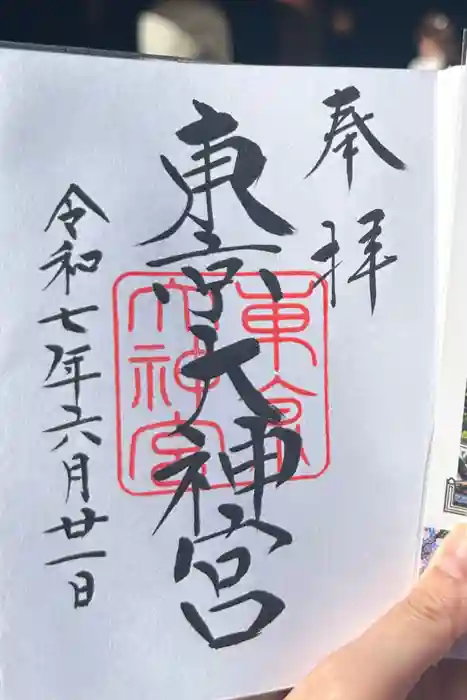 奉拝
東京大神宮
東京
大神宮
令和七年六月廿一日